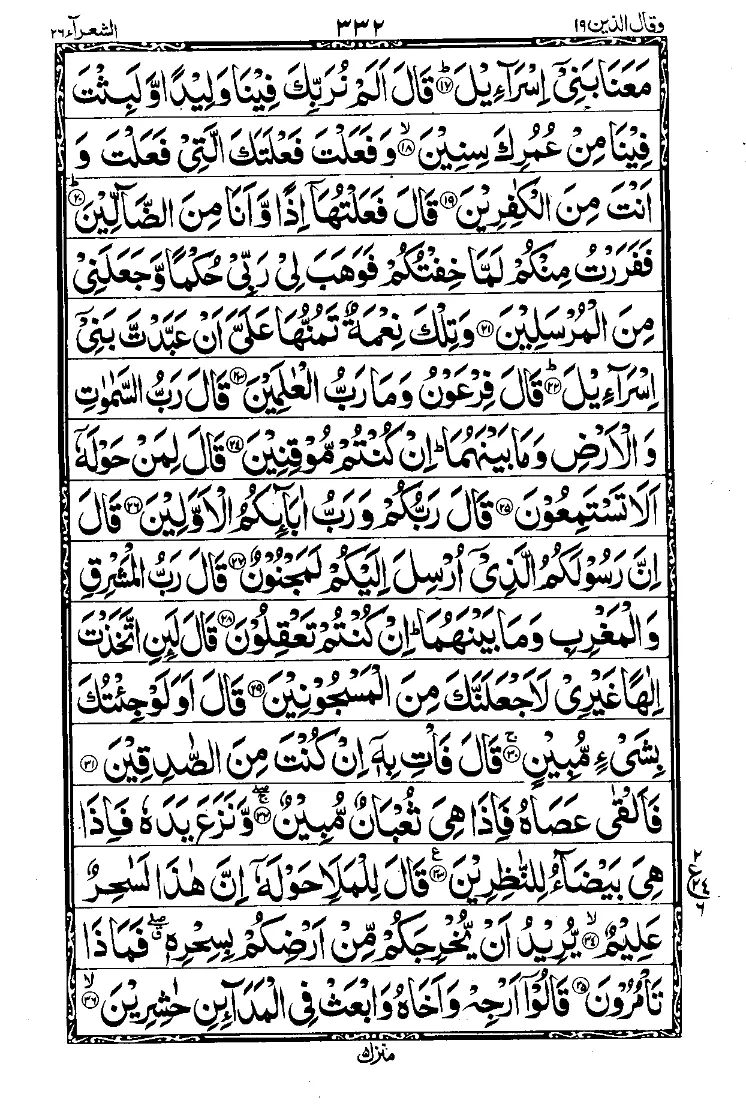 وقال الذين ١٩ ٣٣٢ الشعرآء ٢٦
مَعَنَا بَنِیْۤ اِسْرَآءِیْلَ ؕ﴿۱۷﴾ قَالَ اَلَمْ نُرَبِّكَ فِیْنَا وَلِیْدًا وَّ لَبِثْتَ
فِیْنَا مِنْ عُمُرِكَ سِنِیْنَ ۙ﴿۱۸﴾ وَ فَعَلْتَ فَعْلَتَكَ الَّتِیْ فَعَلْتَ وَ
اَنْتَ مِنَ الْكٰفِرِیْنَ ﴿۱۹﴾ قَالَ فَعَلْتُهَاۤ اِذًا وَّ اَنَا مِنَ الضَّآلِّیْنَ ؕ﴿۲۰﴾
فَفَرَرْتُ مِنْكُمْ لَمَّا خِفْتُكُمْ فَوَهَبَ لِیْ رَبِّیْ حُكْمًا وَّ جَعَلَنِیْ
مِنَ الْمُرْسَلِیْنَ ﴿۲۱﴾ وَ تِلْكَ نِعْمَةٌ تَمُنُّهَا عَلَیَّ اَنْ عَبَّدْتَّ بَنِیْۤ
اِسْرَآءِیْلَ ؕ﴿۲۲﴾ قَالَ فِرْعَوْنُ وَ مَا رَبُّ الْعٰلَمِیْنَ ﴿۲۳﴾ قَالَ رَبُّ السَّمٰوٰتِ
وَ الْاَرْضِ وَ مَا بَیْنَهُمَا ؕ اِنْ كُنْتُمْ مُّوْقِنِیْنَ ﴿۲۴﴾ قَالَ لِمَنْ حَوْلَهٗۤ
اَلَا تَسْتَمِعُوْنَ ﴿۲۵﴾ قَالَ رَبُّكُمْ وَ رَبُّ اٰبَآىِٕكُمُ الْاَوَّلِیْنَ ﴿۲۶﴾ قَالَ
اِنَّ رَسُوْلَكُمُ الَّذِیْۤ اُرْسِلَ اِلَیْكُمْ لَمَجْنُوْنٌ ﴿۲۷﴾ قَالَ رَبُّ الْمَشْرِقِ
وَ الْمَغْرِبِ وَ مَا بَیْنَهُمَا ؕ اِنْ كُنْتُمْ تَعْقِلُوْنَ ﴿۲۸﴾ قَالَ لَىِٕنِ اتَّخَذْتَ
اِلٰهًا غَیْرِیْ لَاَجْعَلَنَّكَ مِنَ الْمَسْجُوْنِیْنَ ﴿۲۹﴾ قَالَ اَوَ لَوْ جِئْتُكَ
بِشَیْءٍ مُّبِیْنٍ ۚ﴿۳۰﴾ قَالَ فَاْتِ بِهٖۤ اِنْ كُنْتَ مِنَ الصّٰدِقِیْنَ ﴿۳۱﴾
فَاَلْقٰی عَصَاهُ فَاِذَا هِیَ ثُعْبَانٌ مُّبِیْنٌ ۚۖ﴿۳۲﴾ وَّ نَزَعَ یَدَهٗ فَاِذَا
هِیَ بَیْضَآءُ لِلنّٰظِرِیْنَ ﴿۳۳﴾ ع قَالَ لِلْمَلَاِ حَوْلَهٗۤ اِنَّ هٰذَا لَسٰحِرٌ
٢ ع ٢٤ ٦
عَلِیْمٌ ۙ﴿۳۴﴾ یُّرِیْدُ اَنْ یُّخْرِجَكُمْ مِّنْ اَرْضِكُمْ بِسِحْرِهٖ ۖۗ فَمَاذَا
تَاْمُرُوْنَ ﴿۳۵﴾ قَالُوْۤا اَرْجِهْ وَ اَخَاهُ وَ ابْعَثْ فِی الْمَدَآىِٕنِ حٰشِرِیْنَ ۙ﴿۳۶﴾
منزل ٥